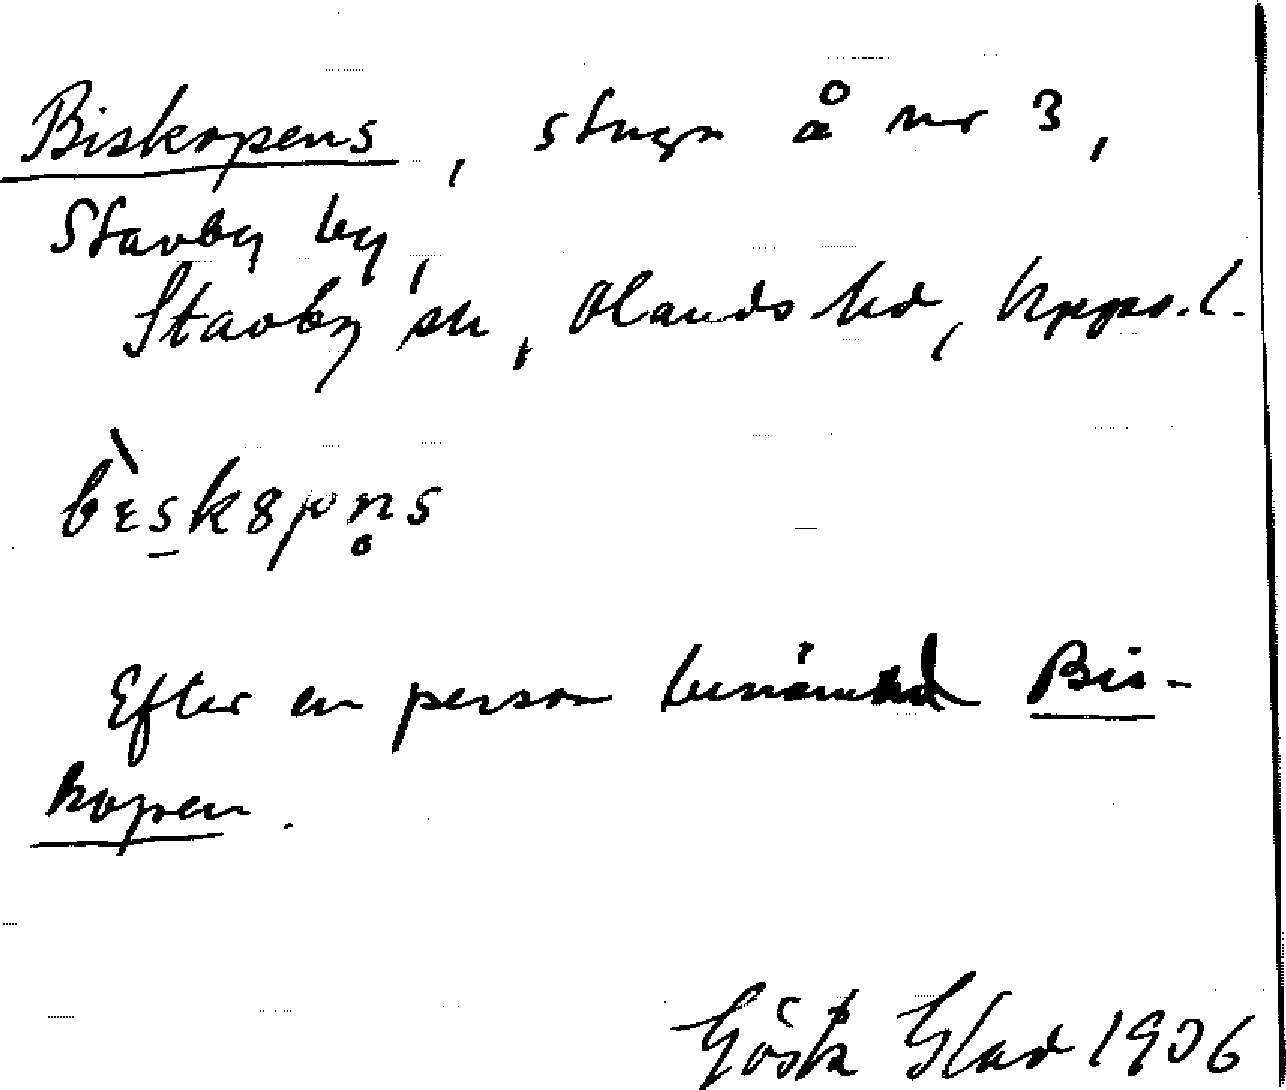 Biskopens, stuga å nr 3,
Stavby by,
Stavby sn, Olands hd, Upps. l.
bèskȣpn̥s
Efter en person benämnd Bis-
kopen.
Gösta Glad 1936